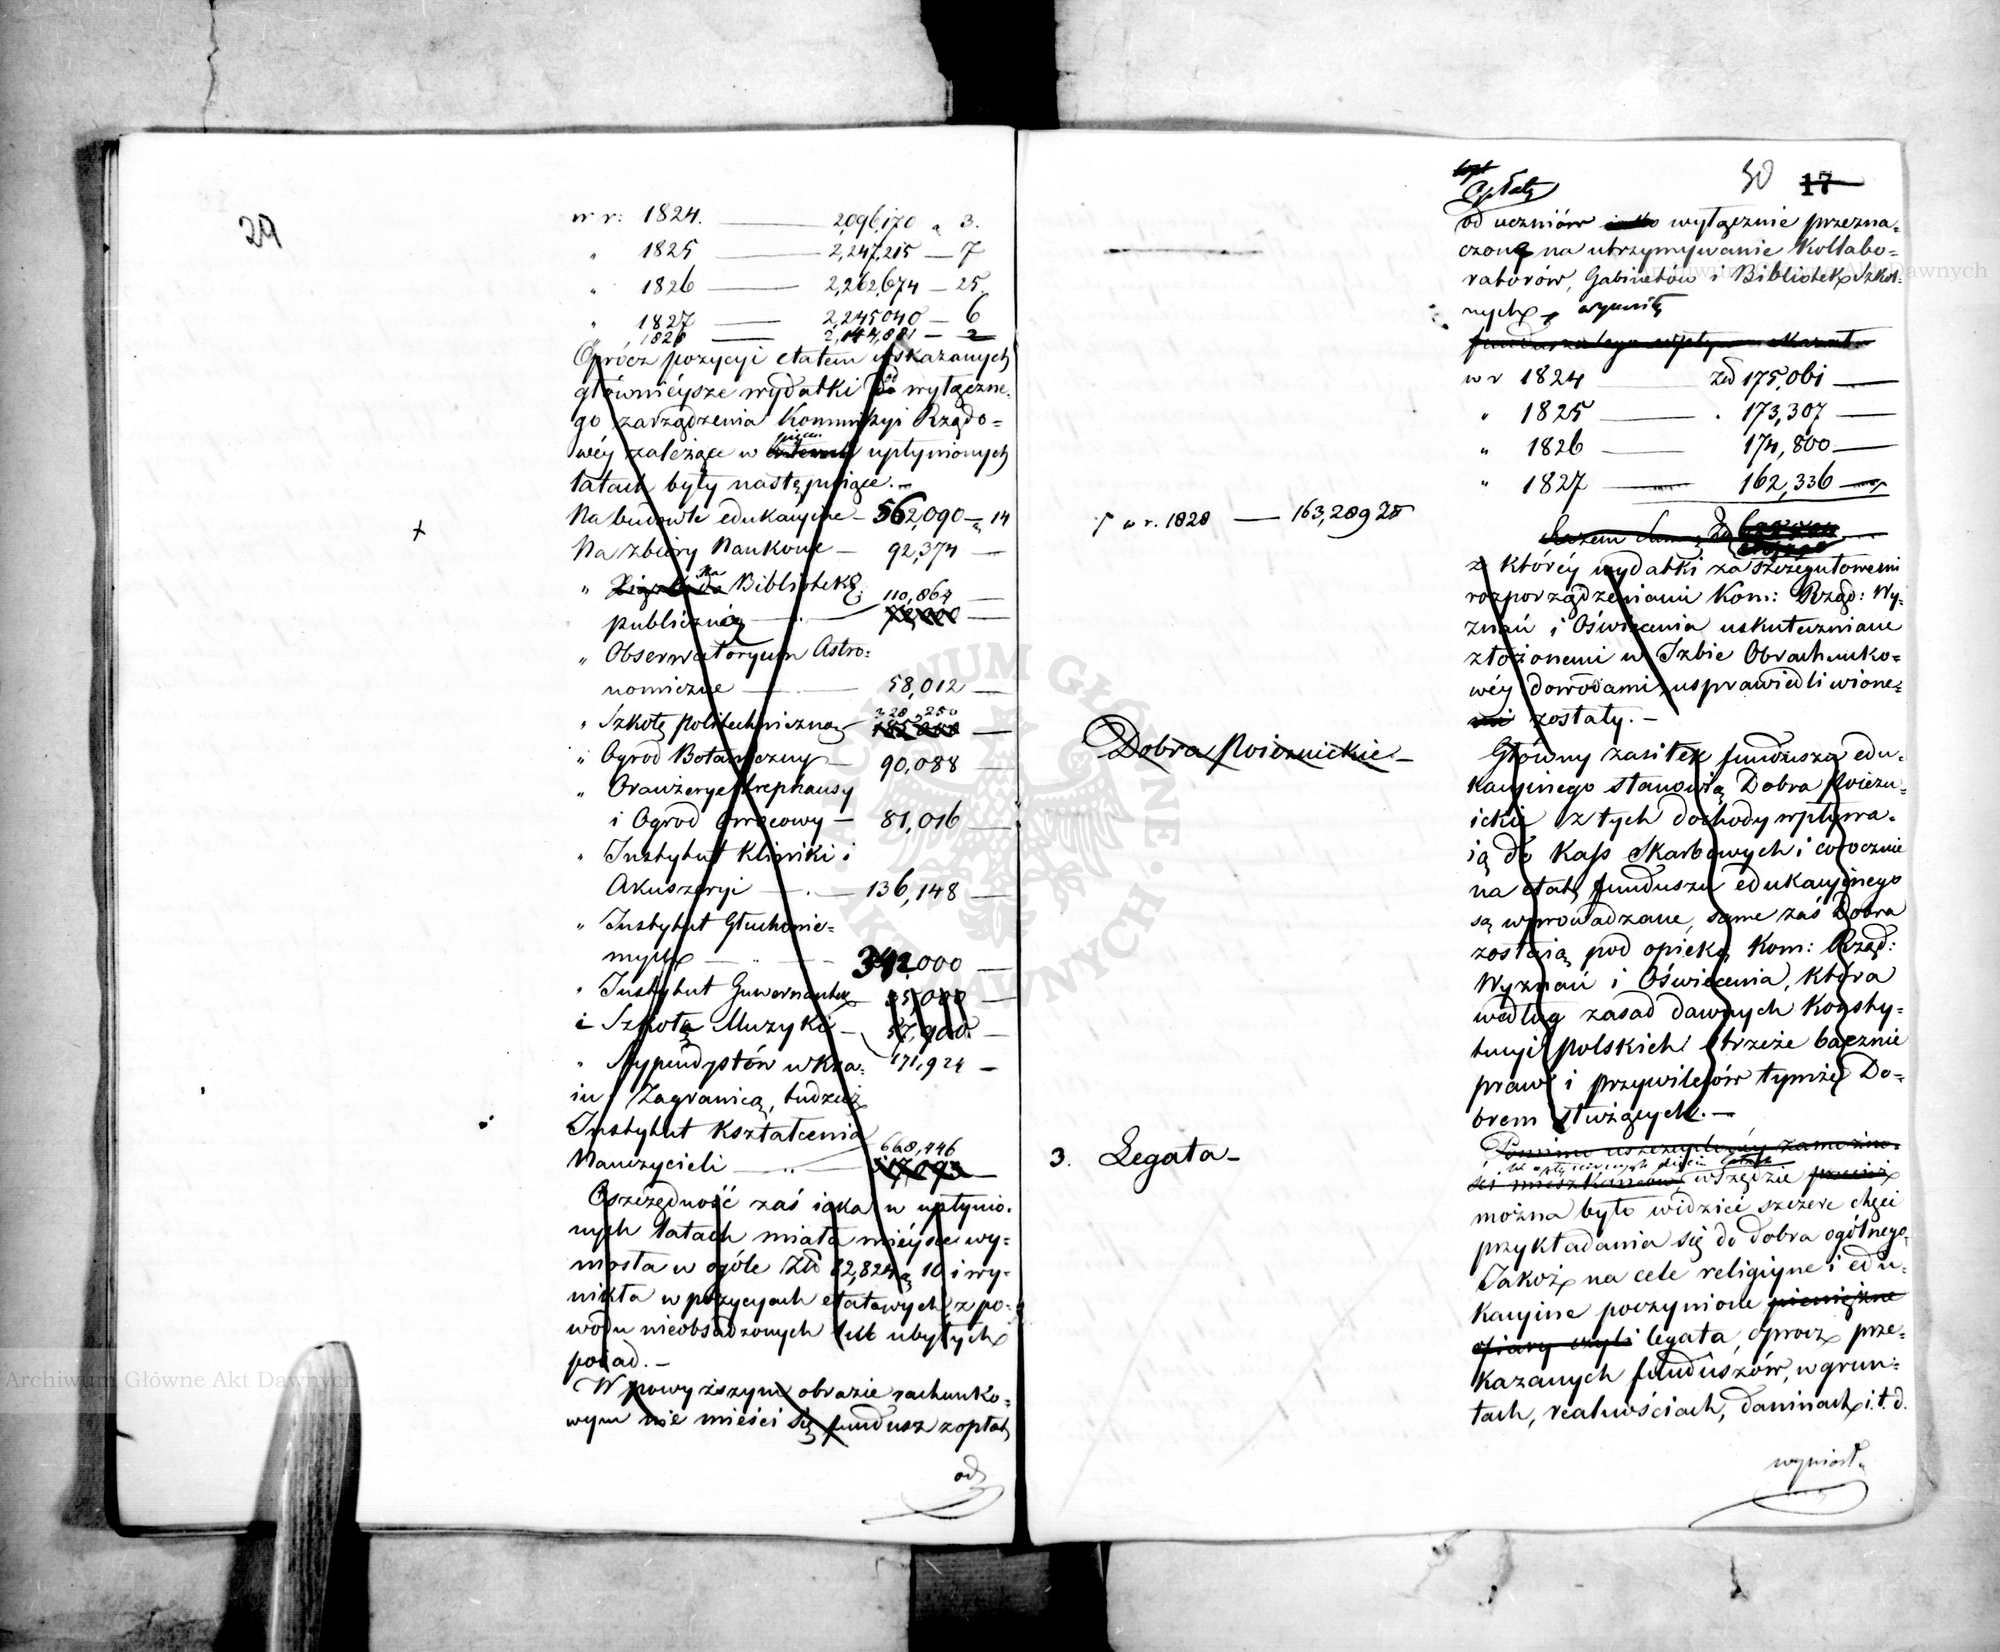 29
w r: 1824. — 2,096,170 „ 3.
„ 1825 — 2,247,215 — 7
„ 1826 — 2,262,674 — 25.
„ 1827 — 2,245,040 — 6
„ 1828 — 2,144,881 — 2
Oprócz pozycyi etatem wskazanych
główniéysze wydatki od wyłączne-
go zarządzenia Kommissyi Rządo-
wéy zależące w upłynionych
latach były następuiące. —
Na budowle edukacyine — 562,090 — „ 14
+
Na zbiory Naukowe — 92,374 —
„ Na Bibliotekę 110,864 —
publiczną —
„ Obserwatoryum Astro:
nomiczne — 58,012 —
„ Szkołę politechniczną 228,250 —
„ Ogrod Botaniczny — 90,088 —
„ Oranżerye trephausy
i Ogrod Owocowy — 81,016 —
„ Instytut Kliniki i
Akuszeryi — 136,148 —
„ Instytut Głuchonie-
mych — 342,000 —
„ Instytut Guwernantek
i Szkołą Muzyki —
„ Stypendystów w Kra-
iu i Zagranicą, tudzież 171,924 —
Instytut Kształcenia
Nauczycieli — 668,446
Oszczędność zaś iaka w upłynio-
nych latach miała mieysce wy-
niosła w ogóle Złp 82,824 g 10 i wy-
nikła w pozycyach etatowych z po-
wodu nieobsadzonych lub ubyłych
posad. —
W powyższym obrazie rachunko-
wym nie mieści się fundusz z opłaty
od
30 17
Opłaty
od uczniów wyłącznie przezna-
czoną na utrzymywanie Kollabo-
ratorów, Gabinetów i Bibliotek Szkol-
nych, wynosiły
w r 1824 — złp 175,061 —
„ 1825 — „ 173,307 —
„ 1826 — 174,800 —
„ 1827 — 162,336 —
w r. 1828 — 163,289 28
z któréy wydatki za szczegułowemi
rozporządzeniami Kom: Rząd: Wy-
znań i Oświecenia uskuteczniane
złożonemi w Izbie Obrachunko-
wéy dowodami usprawiedliwione
zostały. —
Dobra Poiezuickie —
Główny zasiłek funduszu edu-
kacyinego stanowią Dobra Poiezu-
ickie z tych dochody wpływa-
ią do Kass Skarbowych i corocznie
na etat funduszu edukacyinego
są wprowadzane, same zaś Dobra
zostaią pod opieką Kom: Rząd:
Wyznań i Oświecenia, która
według zasad dawnych Konsty-
tucyi polskich strzeże bacznie
praw i przywilejów tymże Do-
brom służących. —
3. Legata —
wszędzie
można było widzieć szczere chęci
przykładania się do dobra ogólnego,
Jakoż na cele religiyne i edu-
kacyine poczynione pieniężne
ofiary czyli legata, oprócz prze-
kazanych funduszów, w grun-
tach, realnościach, daninach i.t.d.
wyniosły
Archiwum Główne Akt Dawnych
Archiwum Główne Akt Dawnych
ARCHIWUM GŁÓWNE AKT DAWNYCH